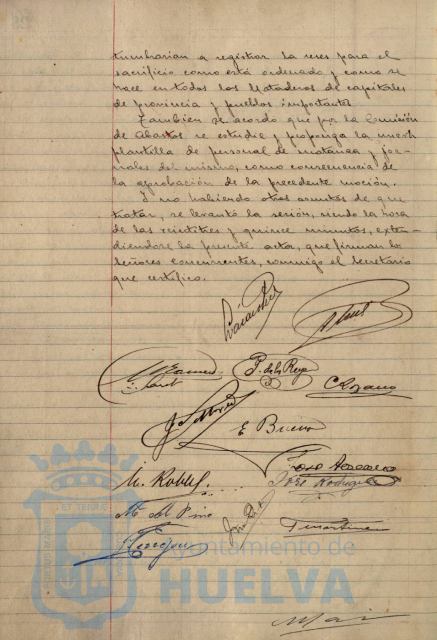 tumbrarian a registrar la reses para el
sacrificio como está ordenado y como se
hace en todos los Mataderos de capitales
de provincia y pueblos importantes
Tambien se acordo que por la Comisión
de Abastos se estudie y proponga la nueva
plantilla de personal de matanza y jor-
nales del mismo, como consecuencia de
la aprobación de la precedente moción.
Y no habiendo otros asuntos de que
tratar, se levantó la sesión, siendo la hora
de las veintitres y quince minutos, exten-
diendose la presente acta, que firman los
señores concurrentes, conmigo el Secretario
que certifico.
P. de la Rosa
C Lozano
E Bueno
M. Robles
José Rodriguez
M. del Pino
Ayuntamiento de
HUELVA